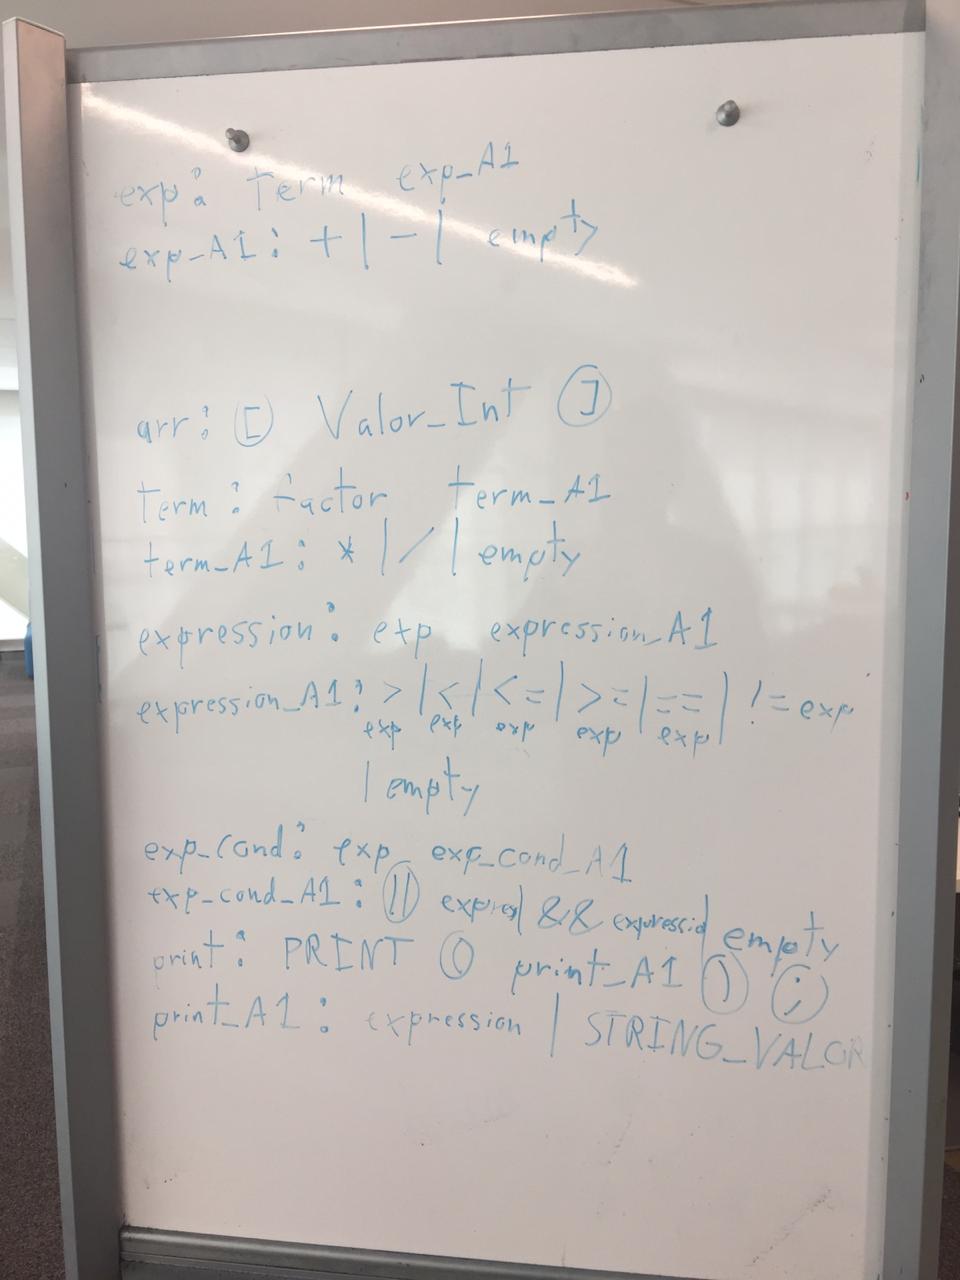 exp: term exp_A1
exp_A1: + | - | empty
arr: [ Valor_Int ]
term: factor term_A1
term_A1: * | / | empty
expression: exp expression_A1
expression_A1: > | < | <= | >= | == | != exp
exp exp exp exp exp
| empty
exp_cond: exp exp_cond_A1
exp_cond_A1: || expres | && expressio | empty
print: PRINT ( print_A1 ) ;
print_A1: expression | STRING_VALOR